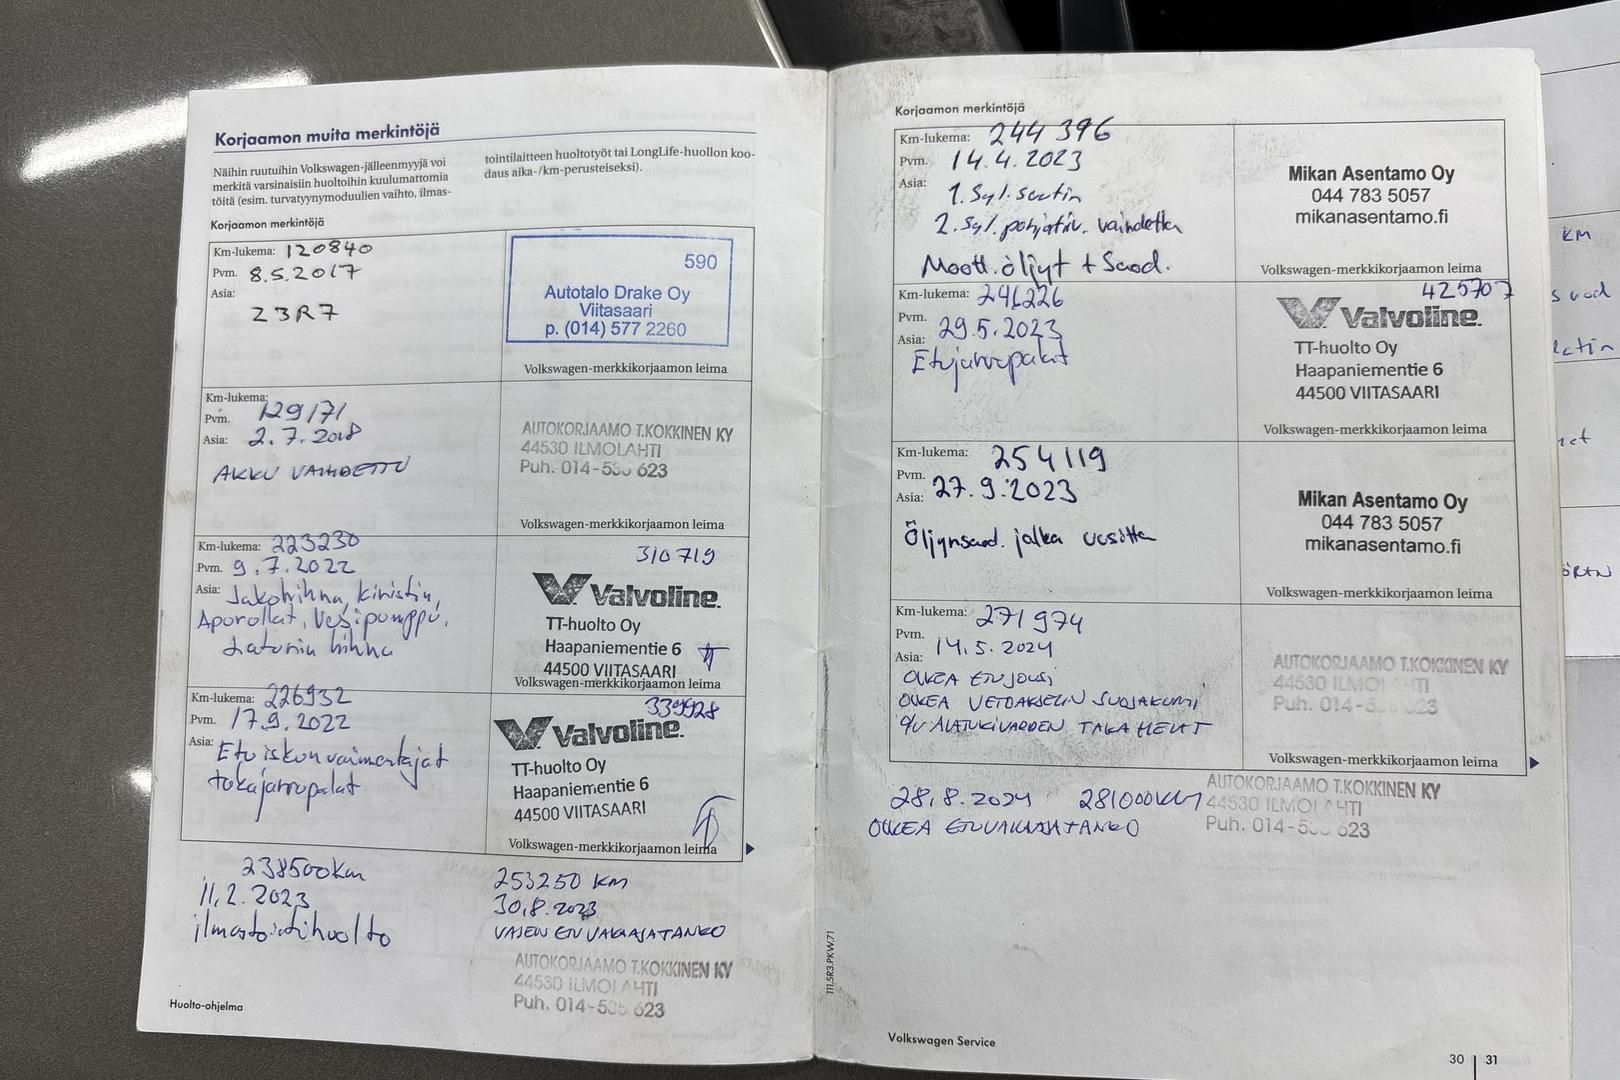 Korjaamon muita merkintöjä
Näihin ruutuihin Volkswagen-jälleenmyyjä voi
merkitä varsinaisiin huoltoihin kuulumattomia
töitä (esim. turvatyynymoduulien vaihto, ilmas-
tointilaitteen huoltotyöt tai LongLife-huollon koo-
daus aika-/km-perusteiseksi).
Korjaamon merkintöjä
Km-lukema: 120840
Pvm. 8.5.2017
Asia:
23R7
590
Autotalo Drake Oy
Viitasaari
p. (014) 577 2260
Volkswagen-merkkikorjaamon leima
Km-lukema:
Pvm. 129171
Asia: 2.7.2018
AKKU VAIHDETTU
AUTOKORJAAMO T.KOKKINEN KY
44530 ILMOLAHTI
Puh. 014-535 623
Volkswagen-merkkikorjaamon leima
Km-lukema: 223230
Pvm. 9.7.2022
Asia: Jakohihna, kiristin,
Aporollat, Vesipumppu,
Laturin hihna
310719
Valvoline.
TT-huolto Oy
Haapaniementie 6
44500 VIITASAARI
Volkswagen-merkkikorjaamon leima
Km-lukema: 226932
Pvm. 17.9.2022
Asia: Etuiskunvaimentajat
takajarrupalat
339928
Valvoline.
TT-huolto Oy
Haapaniementie 6
44500 VIITASAARI
Volkswagen-merkkikorjaamon leima
238500km
11.2.2023
ilmastointihuolto
253250 KM
30.8.2023
VASEN ETU VAKAAJATANKO
AUTOKORJAAMO T.KOKKINEN KY
44530 ILMOLAHTI
Puh. 014-535 623
Huolto-ohjelma
Korjaamon merkintöjä
Km-lukema: 244 396
Pvm. 14.4.2023
Asia:
1. Syl. suutin
2. Syl. pohjatiiv. vaihdettu
Moott. öljyt + Suod.
Mikan Asentamo Oy
044 783 5057
mikanasentamo.fi
Volkswagen-merkkikorjaamon leima
Km-lukema: 246226
Pvm. 29.5.2023
Asia:
Etujarrupalat
425707
Valvoline.
TT-huolto Oy
Haapaniementie 6
44500 VIITASAARI
Volkswagen-merkkikorjaamon leima
Km-lukema: 254119
Pvm.
Asia: 27.9.2023
Öljynsuod. jalka uusittu
Mikan Asentamo Oy
044 783 5057
mikanasentamo.fi
Volkswagen-merkkikorjaamon leima
Km-lukema: 271974
Pvm. 14.5.2024
Asia:
OIKEA ETUJOUSI
OIKEA VETOAKSELIN SUOJAKUMI
O/V ALATUKIVARREN TAKA HELAT
AUTOKORJAAMO T.KOKKINEN KY
44530 ILMOLAHTI
Puh. 014-535 623
Volkswagen-merkkikorjaamon leima
28.8.2024 281000KM
OIKEA ETUVAKAAJATANKO
AUTOKORJAAMO T.KOKKINEN KY
44530 ILMOLAHTI
Puh. 014-535 623
111.5R3.PKW.71
Volkswagen Service
30 31
KM